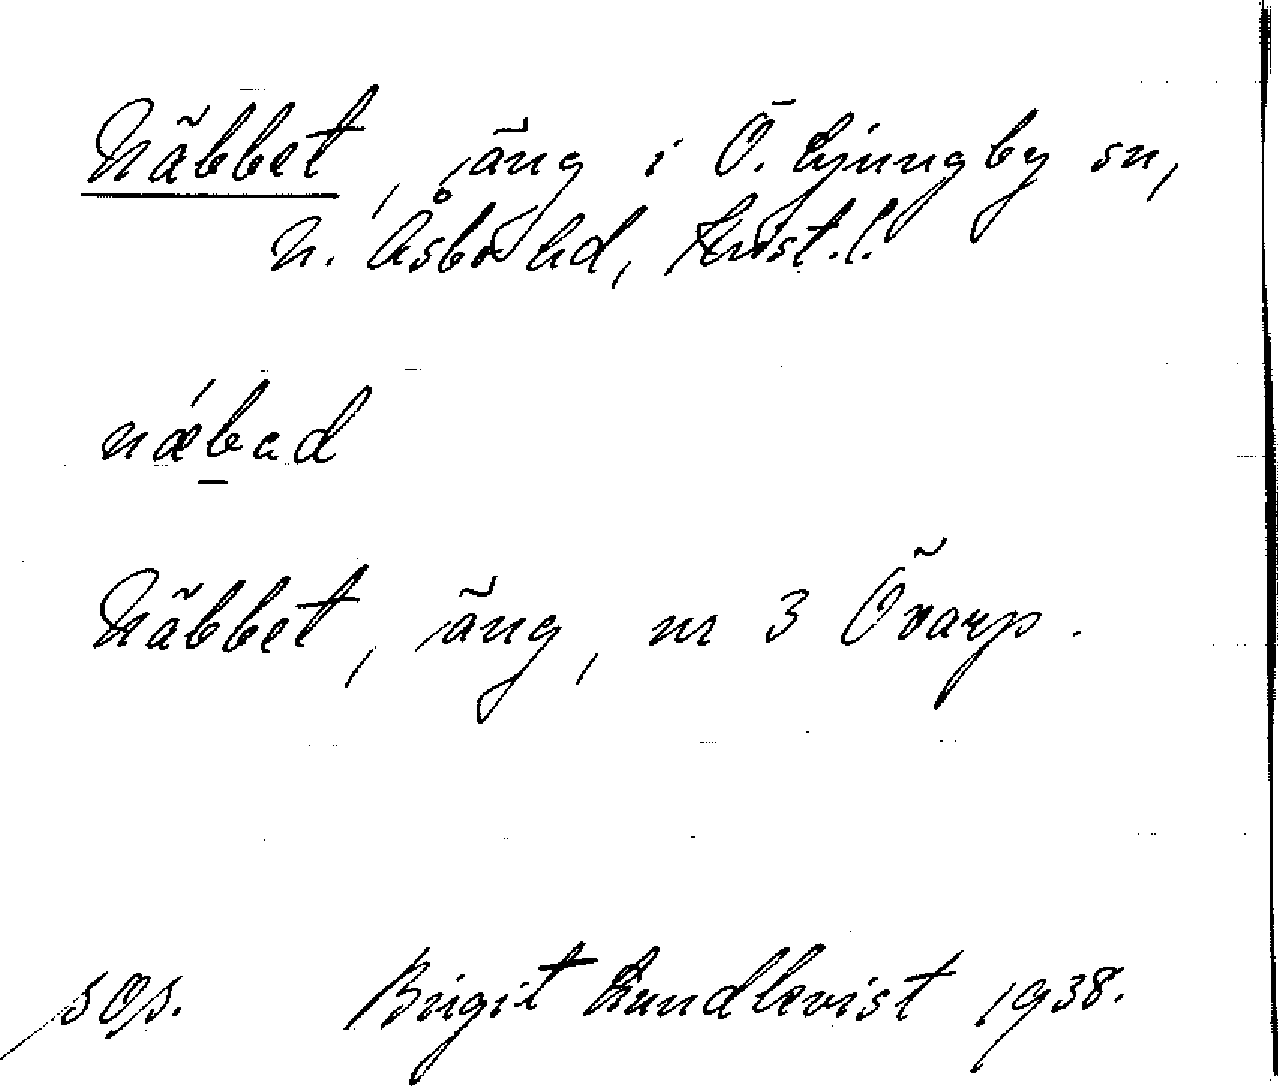 Näbbet, äng i Ö. Ljungby sn,
N. Åsbo hd, Krist. l.
nǽb̲ad
Näbbet, äng, nr 3 Övarp.
sops.
Birgit Lundkvist 1938.